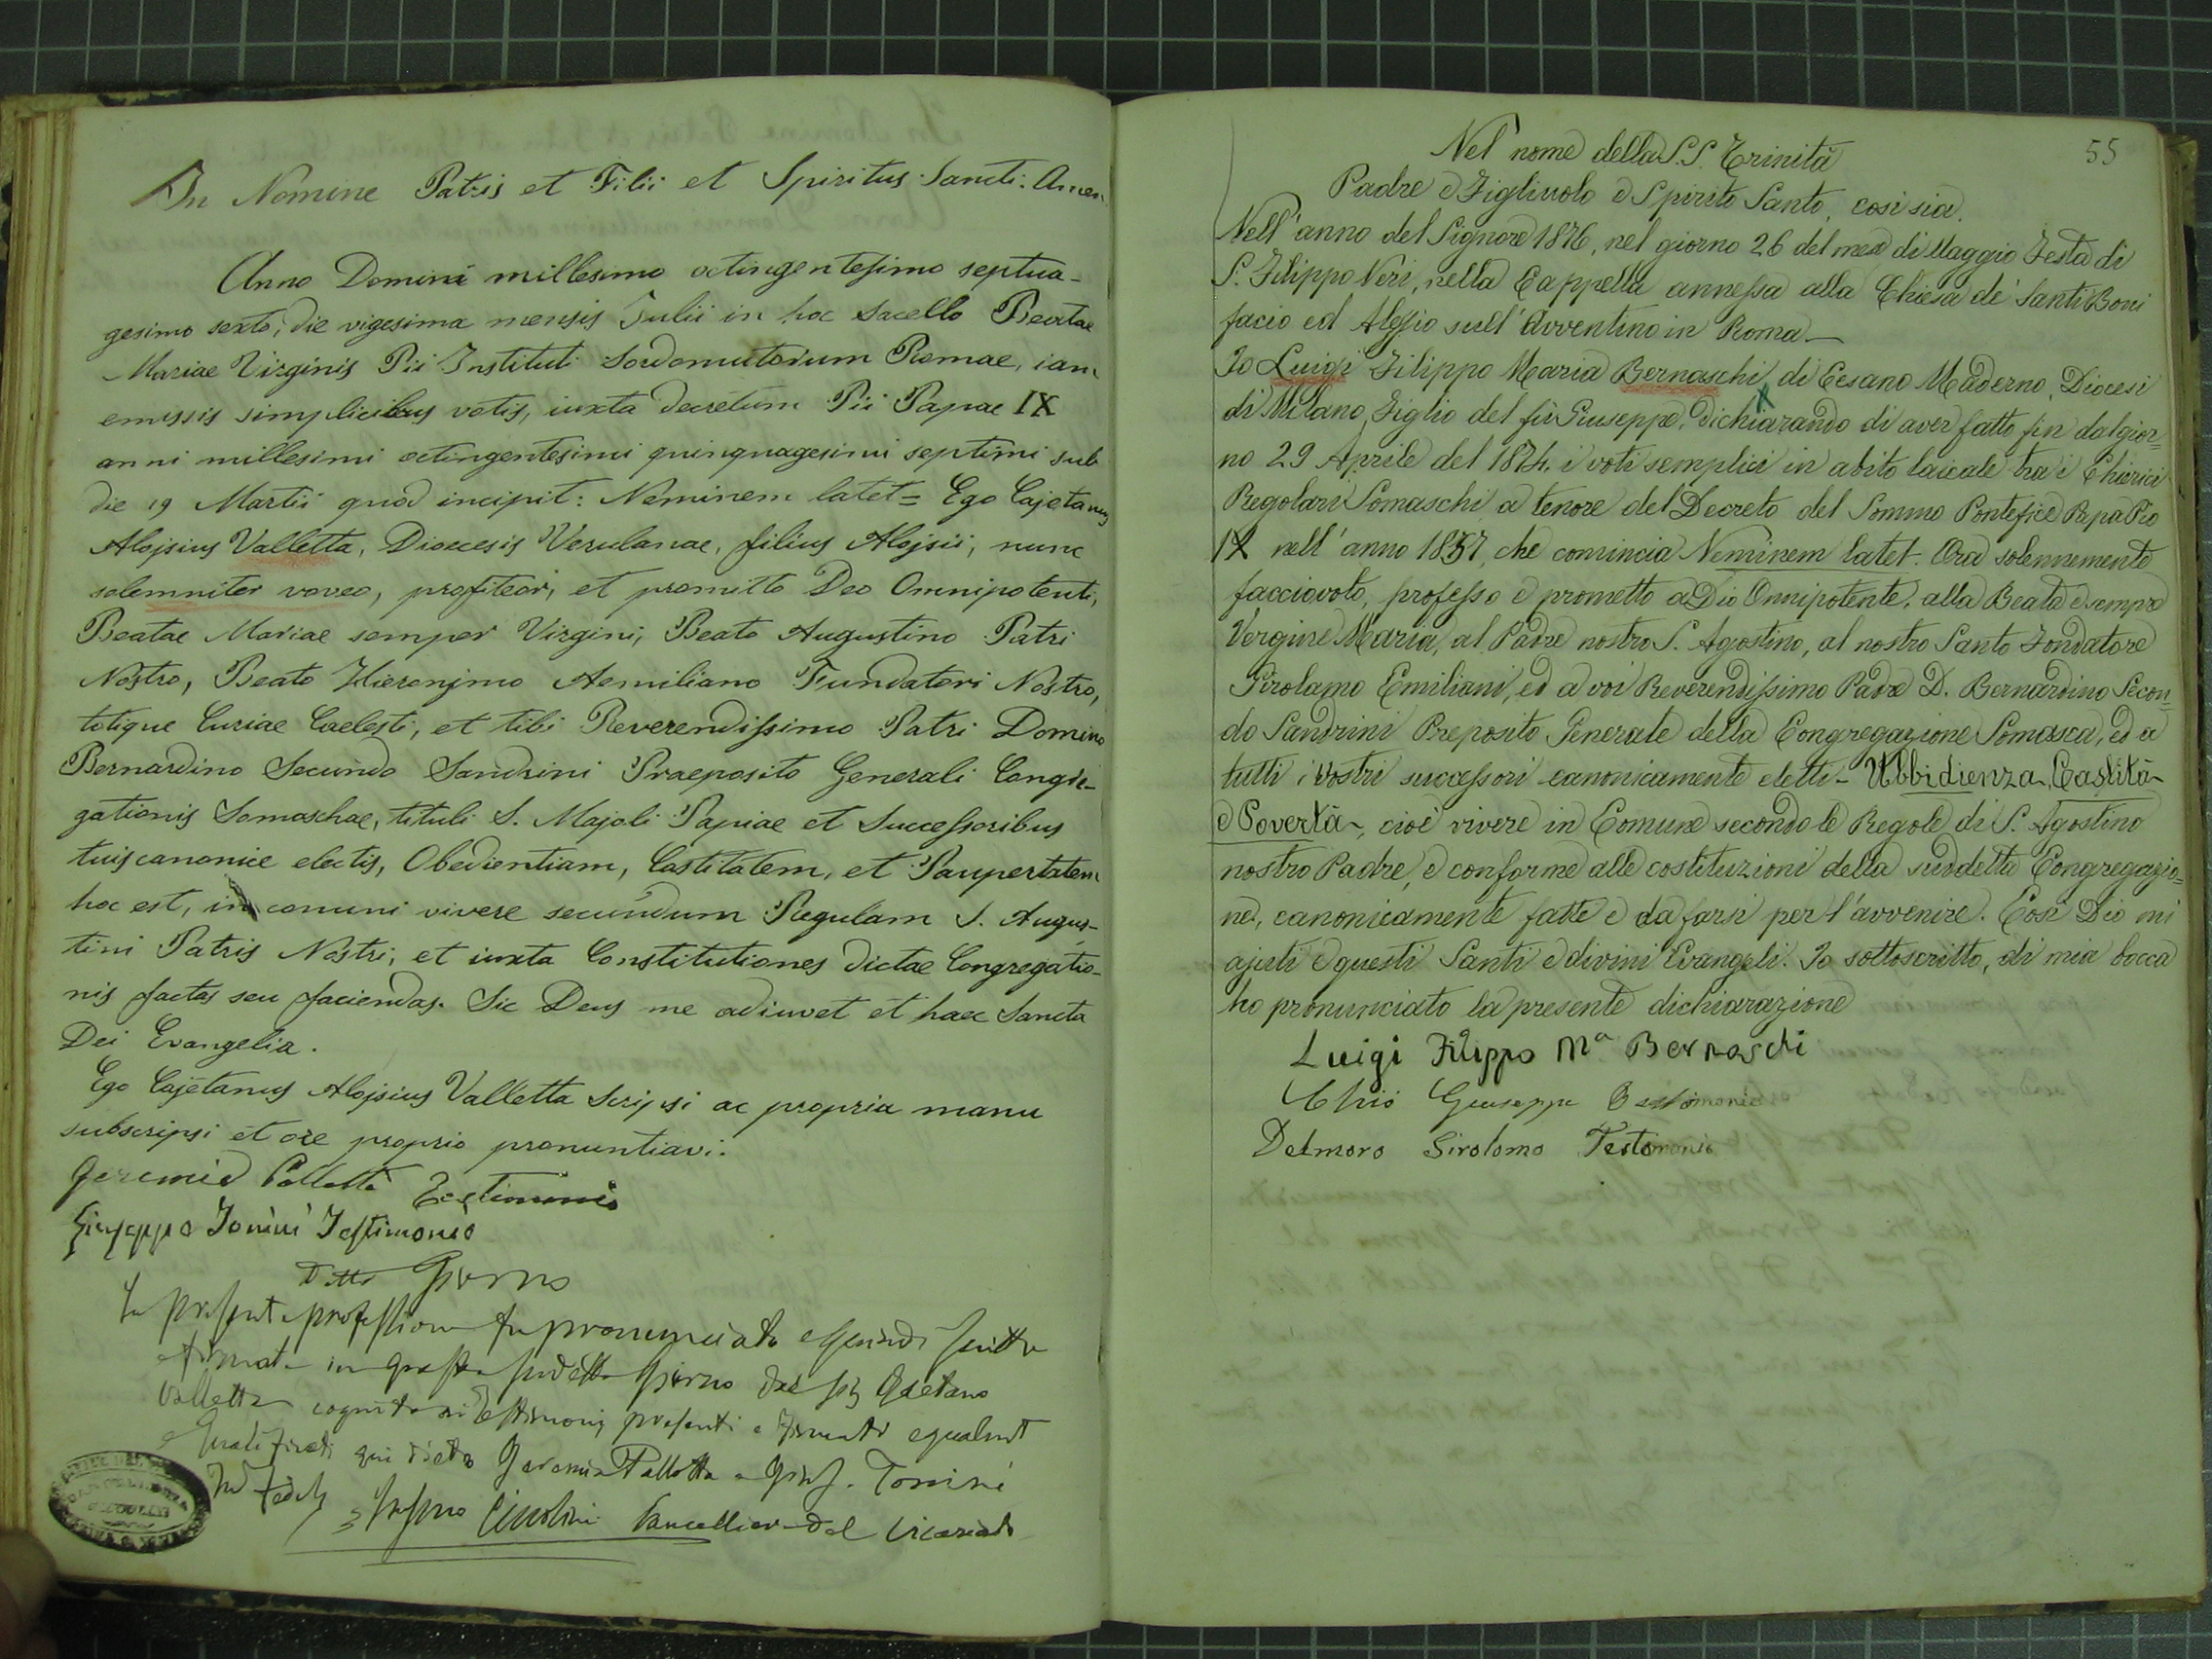 In Nomine Patris et Filii et Spiritus Sancti. Amen.
Anno Domini millesimo octingentesimo septua-
gesimo sexto, die vigesima mensis Julii in hoc sacello Beatae
Mariae Virginis Pii Instituti Sordomutorum Romae, iam
emissis simplicibus votis, iuxta decretum Pii Papae IX
anni millesimi octingentesimi quinquagesimi septimi sub
die 19 Martii quod incipit: Neminem latet = Ego Cajetanus
Alojsius Valletta, Dioecesis Verulanae, filius Alojsii, nunc
solemniter voveo, profiteor, et promitto Deo Omnipotenti,
Beatae Mariae semper Virgini, Beato Augustino Patri
Nostro, Beato Hieronjmo Aemiliano Fundatori Nostro,
totique Curiae Caelesti, et tibi Reverendissimo Patri Domino
Bernardino Secundo Sandrini Praeposito Generali Congre-
gationis Somaschae, tituli S. Majoli Papiae et Successoribus
tuis canonice electis, Obedientiam, Castitatem, et Paupertatem
hoc est, in comuni vivere secundum Regulam S. Augus-
tini Patris Nostri, et iuxta Constitutiones dictae Congregatio-
nis factas seu faciendas. Sic Deus me adiuvet et haec Sancta
Dei Evangelia.
Ego Cajetanus Alojsius Valletta scripsi ac propria manu
subscripsi et ore proprio pronuntiavi.
Geremia Pallotta Testimonio
Giuseppe Tonini Testimonio
Detto Giorno
La presente professione fu pronunciata e quindi scritta
e firmata in questo sudetto Giorno dal Sig Gaetano
Valletta cognito ai Testimonj presenti e firmati egualmt
qui dietro Geremia Pallotta e Gius. Tonini
In fede
Cancelliere del Vicariato
55
Nel nome della S.S. Trinità
Padre e Figliuolo e Spirito Santo, così sia.
Nell'anno del Signore 1876, nel giorno 26 del mese di Maggio Festa di
S. Filippo Neri, nella Cappella annessa alla Chiesa de' Santi Boni
facio ed Alessio sull'Avventino in Roma —
Io Luigi Filippo Maria Bernaschi di Cesano Maderno, Diocesi
di Milano, Figlio del fù Giuseppe, dichiarando di aver fatto fin dal gior=
no 29 Aprile del 1874. i voti semplici in abito laicale tra i Chierici
Regolari Somaschi a tenore del Decreto del Sommo Pontefice Papa Pio
IX nell'anno 1857, che comincia Neminem latet. Ora solennemente
faccio voto, professo e prometto a Dio Onnipotente, alla Beata e sempre
Vergine Maria, al Padre nostro S. Agostino, al nostro Santo Fondatore
Girolamo Emiliani, ed a voi Reverendissimo Padre D. Bernardino Secon=
do Sandrini Preposito Generale della Congregazione Somasca, ed a
tutti i vostri successori canonicamente eletti - Ubbidienza, Castità
e Povertà -, cioè vivere in Comune secondo le Regole di S. Agostino
nostro Padre, e conforme alle costituzioni della suddetta Congregazio=
ne, canonicamente fatte e da farsi per l'avvenire. Così Dio mi
ajuti e questi Santi e divini Evangeli. Io sottoscritto, di mia bocca
ho pronunciato la presente dichiarazione
Luigi Filippo Mª Bernaschi
Chiò Giuseppe Testimonio
Delmoro Girolomo Testimonio